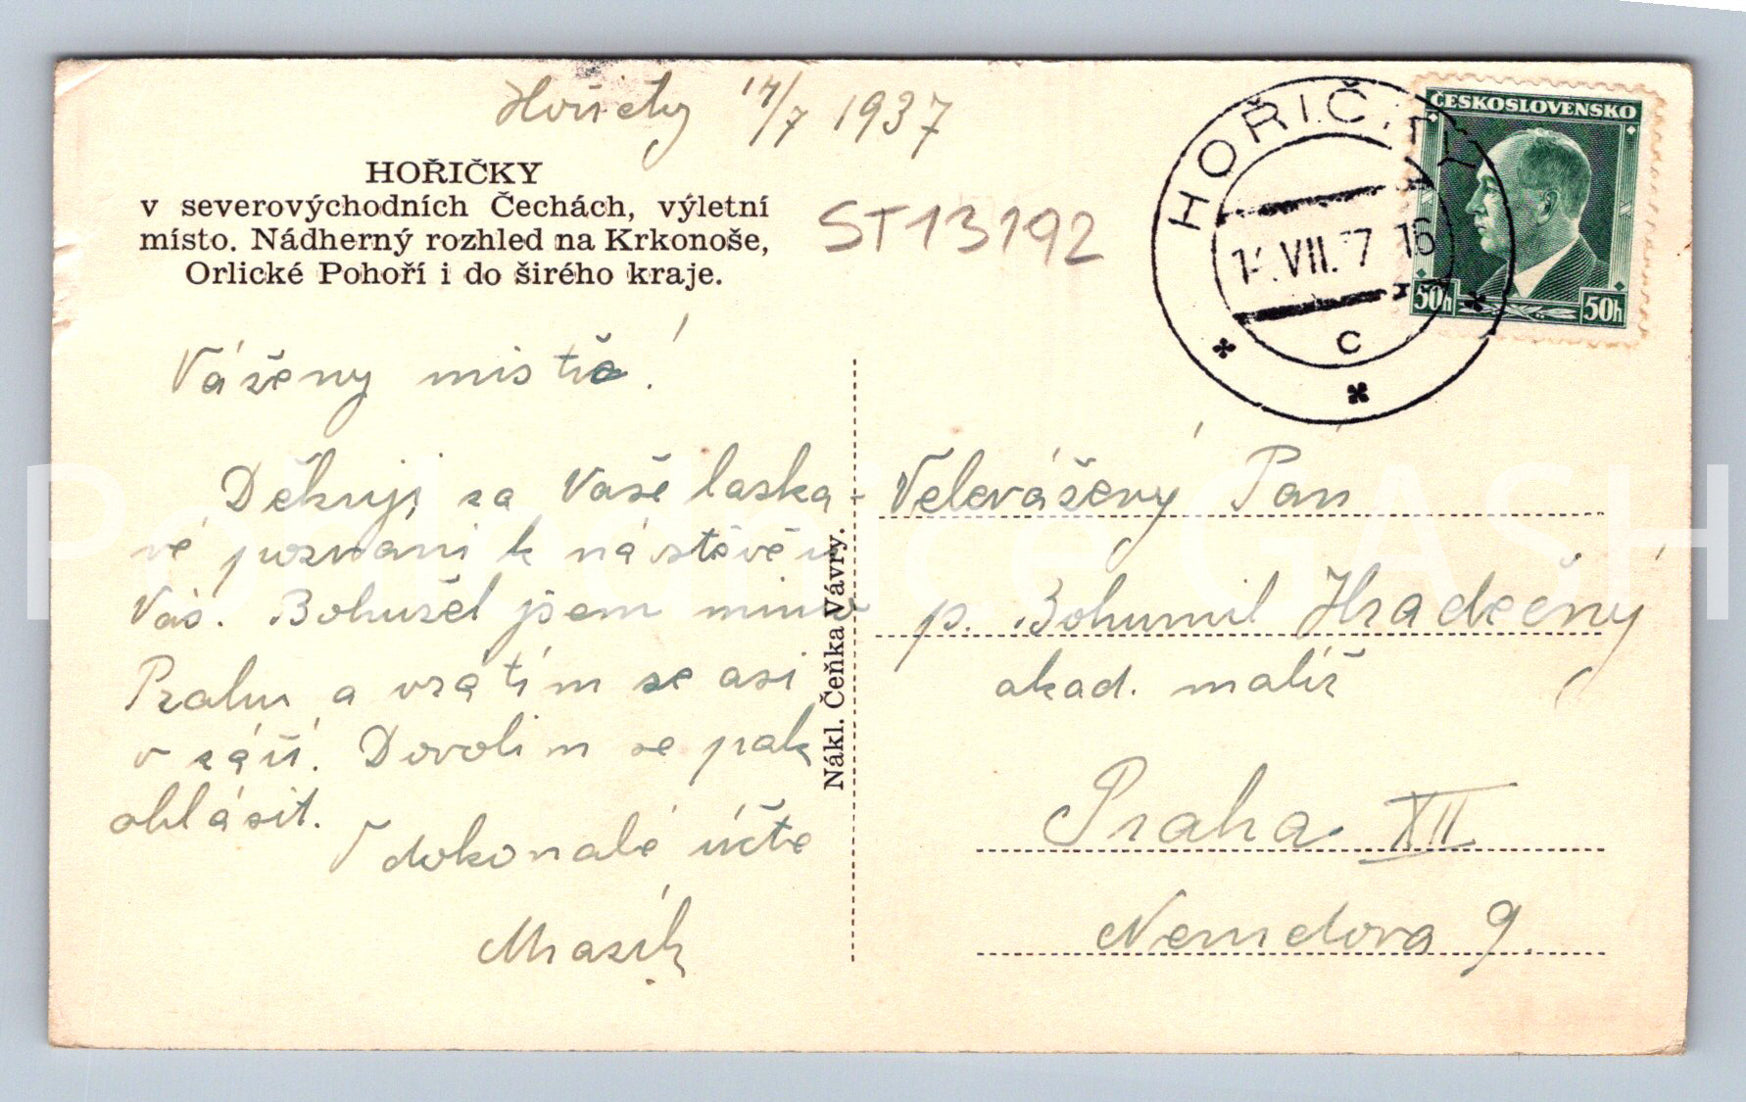 Hořičky 14/7 1937
HOŘIČKY
v severovýchodních Čechách, výletní
místo. Nádherný rozhled na Krkonoše,
Orlické Pohoří i do širého kraje.
ST13192
HOŘIČKY
VII. 7 16
c
ČESKOSLOVENSKO
50h 50h
Vážený mistře!
Děkuji za Vaše laska-
vé pozvání k návštěvě u
Vás. Bohužel jsem mimo
Prahu a vrátím se asi
v září. Dovolím se pak
ohlásit.
V dokonalé úctě
Mrazík
Nákl. Čeňka Vávry.
Velevážený Pán
p. Bohumil Hradečný
akad. malíř
Praha XII
9.
Pohlednice GASH